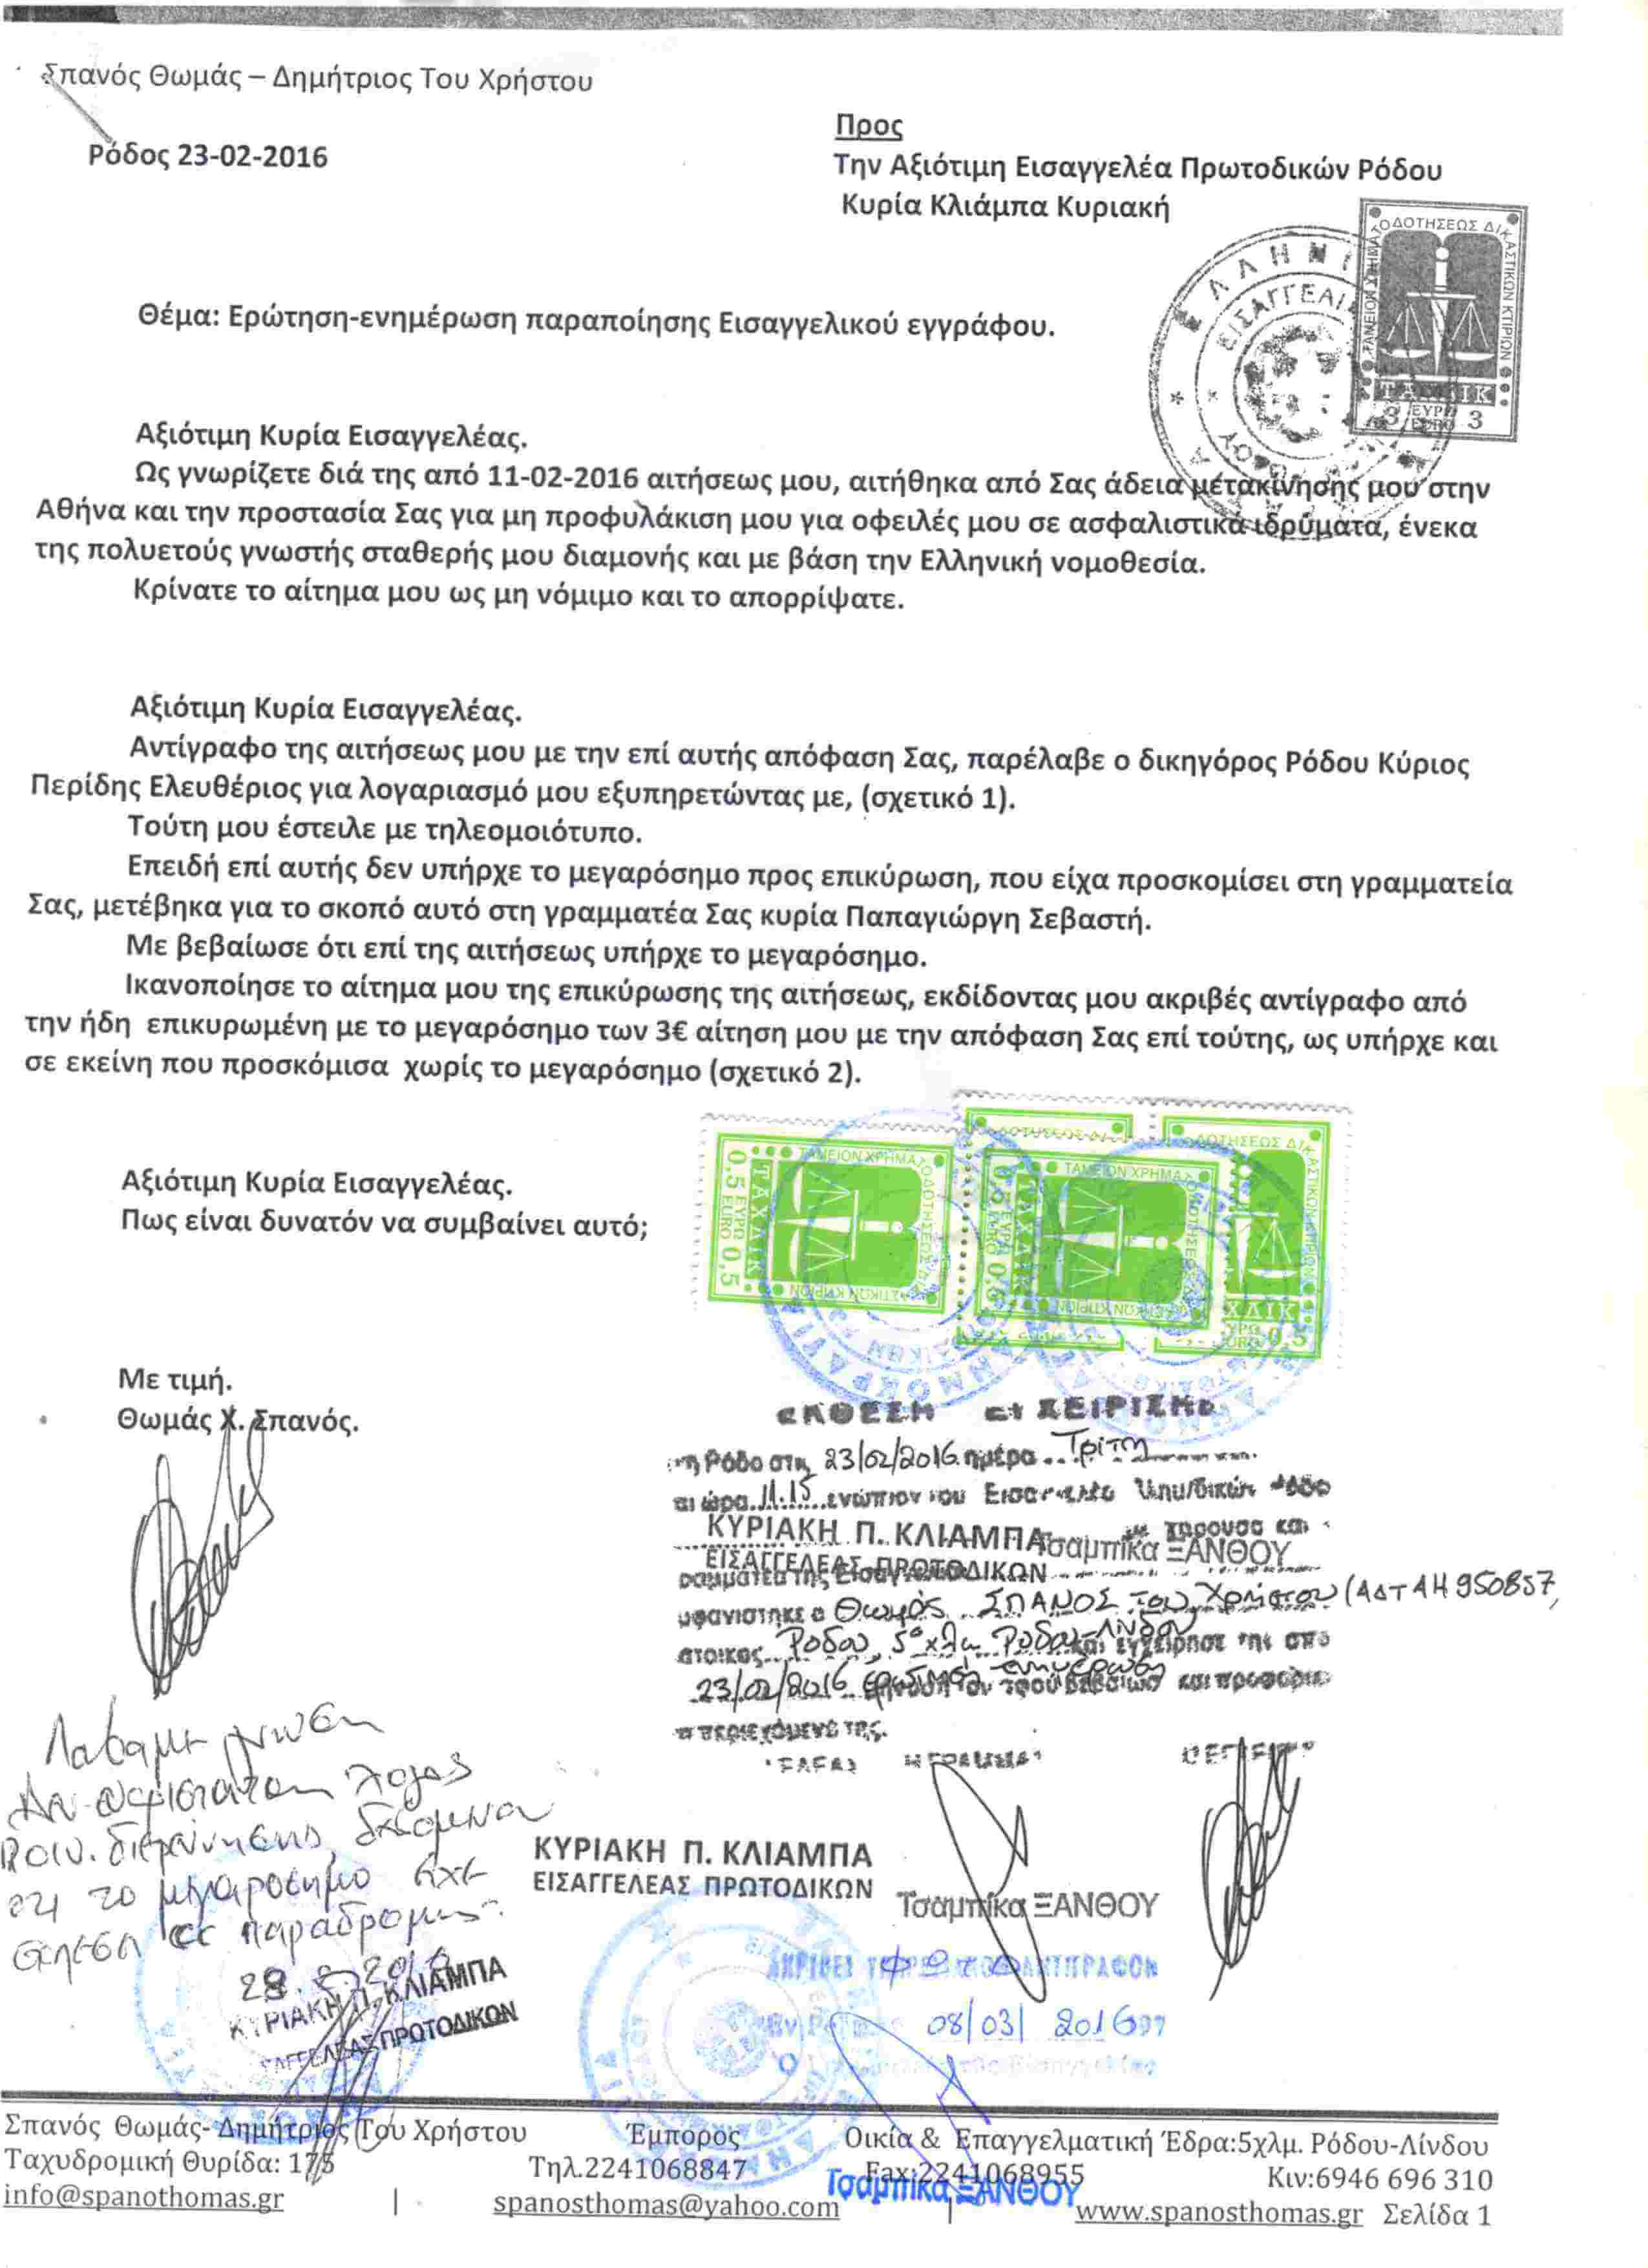 Σπανός Θωμάς – Δημήτριος Του Χρήστου
Ρόδος 23-02-2016
Προς
Την Αξιότιμη Εισαγγελέα Πρωτοδικών Ρόδου
Κυρία Κλιάμπα Κυριακή
ΤΑΜΕΙΟΝ ΧΡΗΜΑΤΟΔΟΤΗΣΕΩΣ ΔΙΚΑΣΤΙΚΩΝ ΚΤΙΡΙΩΝ
3 ΕΥΡΩ EURO 3
Θέμα: Ερώτηση-ενημέρωση παραποίησης Εισαγγελικού εγγράφου.
Αξιότιμη Κυρία Εισαγγελέας.
Ως γνωρίζετε διά της από 11-02-2016 αιτήσεως μου, αιτήθηκα από Σας άδεια μετακίνησής μου στην
Αθήνα και την προστασία Σας για μη προφυλάκιση μου για οφειλές μου σε ασφαλιστικά ιδρύματα, ένεκα
της πολυετούς γνωστής σταθερής μου διαμονής και με βάση την Ελληνική νομοθεσία.
Κρίνατε το αίτημα μου ως μη νόμιμο και το απορρίψατε.
Αξιότιμη Κυρία Εισαγγελέας.
Αντίγραφο της αιτήσεως μου με την επί αυτής απόφαση Σας, παρέλαβε ο δικηγόρος Ρόδου Κύριος
Περίδης Ελευθέριος για λογαριασμό μου εξυπηρετώντας με, (σχετικό 1).
Τούτη μου έστειλε με τηλεομοιότυπο.
Επειδή επί αυτής δεν υπήρχε το μεγαρόσημο προς επικύρωση, που είχα προσκομίσει στη γραμματεία
Σας, μετέβηκα για το σκοπό αυτό στη γραμματέα Σας κυρία Παπαγιώργη Σεβαστή.
Με βεβαίωσε ότι επί της αιτήσεως υπήρχε το μεγαρόσημο.
Ικανοποίησε το αίτημα μου της επικύρωσης της αιτήσεως, εκδίδοντας μου ακριβές αντίγραφο από
την ήδη επικυρωμένη με το μεγαρόσημο των 3€ αίτηση μου με την απόφαση Σας επί τούτης, ως υπήρχε και
σε εκείνη που προσκόμισα χωρίς το μεγαρόσημο (σχετικό 2).
Αξιότιμη Κυρία Εισαγγελέας.
Πως είναι δυνατόν να συμβαίνει αυτό;
ΤΑΜΕΙΟΝ ΧΡΗΜΑΤΟΔΟΤΗΣΕΩΣ
ΤΑΧΔΙΚ
0,5 ΕΥΡΩ EURO 0,5
Με τιμή.
Θωμάς Χ. Σπανός.
ΕΚΘΕΣΗ ΕΓΧΕΙΡΙΣΗΣ
στη Ρόδο στις 23/02/2016 ημέρα Τρίτη
αι ώρα 11.15 ενώπιον του Εισαγγελέα
ΚΥΡΙΑΚΗ Π. ΚΛΙΑΜΠΑ Τσαμπίκα ΞΑΝΘΟΥ
ΕΙΣΑΓΓΕΛΕΑΣ ΠΡΩΤΟΔΙΚΩΝ
εμφανίστηκε ο Θωμάς ΣΠΑΝΟΣ του Χρήστου (ΑΔΤ ΑΗ 950857,
κάτοικος Ρόδου, 5ο χλμ Ρόδου-Λίνδου και εγχείρησε την από
23/02/2016 ερώτηση-ενημέρωση
περιεχόμενό της.
Λάβαμε γνώση
Δεν συντρέχει λόγος
ποιν. διερεύνησης, δεδομένου
ότι το μεγαρόσημο έχει
εκ παραδρομής
2016
ΚΥΡΙΑΚΗ Π. ΚΛΙΑΜΠΑ
ΕΙΣΑΓΓΕΛΕΑΣ ΠΡΩΤΟΔΙΚΩΝ
ΚΥΡΙΑΚΗ Π. ΚΛΙΑΜΠΑ
ΕΙΣΑΓΓΕΛΕΑΣ ΠΡΩΤΟΔΙΚΩΝ
Τσαμπίκα ΞΑΝΘΟΥ
ΑΚΡΙΒΕΣ
08/03/2016
Σπανός Θωμάς- Δημήτριος Του Χρήστου Έμπορος Οικία & Επαγγελματική Έδρα:5χλμ. Ρόδου-Λίνδου
Ταχυδρομική Θυρίδα: 175 Τηλ.2241068847 Fax:2241068955 Κιν:6946 696 310
Τσαμπίκα ΞΑΝΘΟΥ
info@spanothomas.gr | spanosthomas@yahoo.com | www.spanosthomas.gr Σελίδα 1